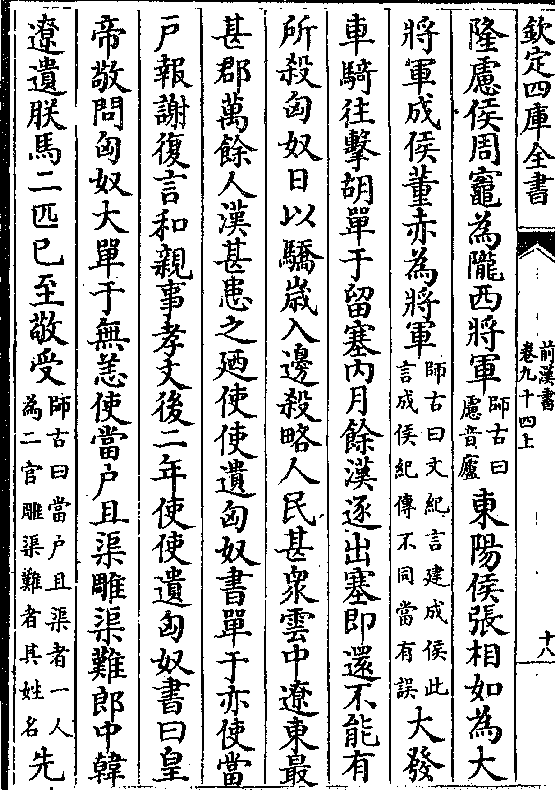 欽定四庫全書
前漢書
卷九十四上
十八
隆慮侯周竈為隴西將軍師古曰慮音廬東陽侯張相如為大
將軍成侯董赤為將軍師古曰文紀言建成侯此言成侯紀傳不同當有誤大發
車騎往擊胡單于留塞内月餘漢逐出塞即還不能有
所殺匈奴日以驕歲入邊殺略人民甚衆雲中遼東最
甚郡萬餘人漢甚患之廼使使遺匈奴書單于亦使當
戶報謝復言和親事孝文後二年使使遺匈奴書曰皇
帝敬問匈奴大單于無恙使當户且渠雕渠難郎中韓
遼遺朕馬二匹已至敬受師古曰當户且渠者一人為二官雕渠難者其姓名先